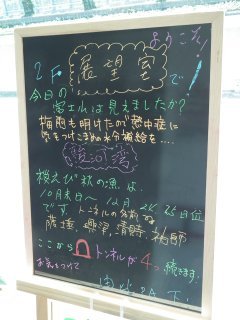 ようこそ!
2F 展望室で!
今日の
富士山は見えましたか?
梅雨も明けたので熱中症に
気をつけこまめに水分補給を…
駿河湾
桜えび秋の漁は、
10月末日〜12月 24、25日位
です。トンネルの名前は
薩埵、興津、清見寺、袖師
ここから トンネルが4つ続きます。
お気をつけて